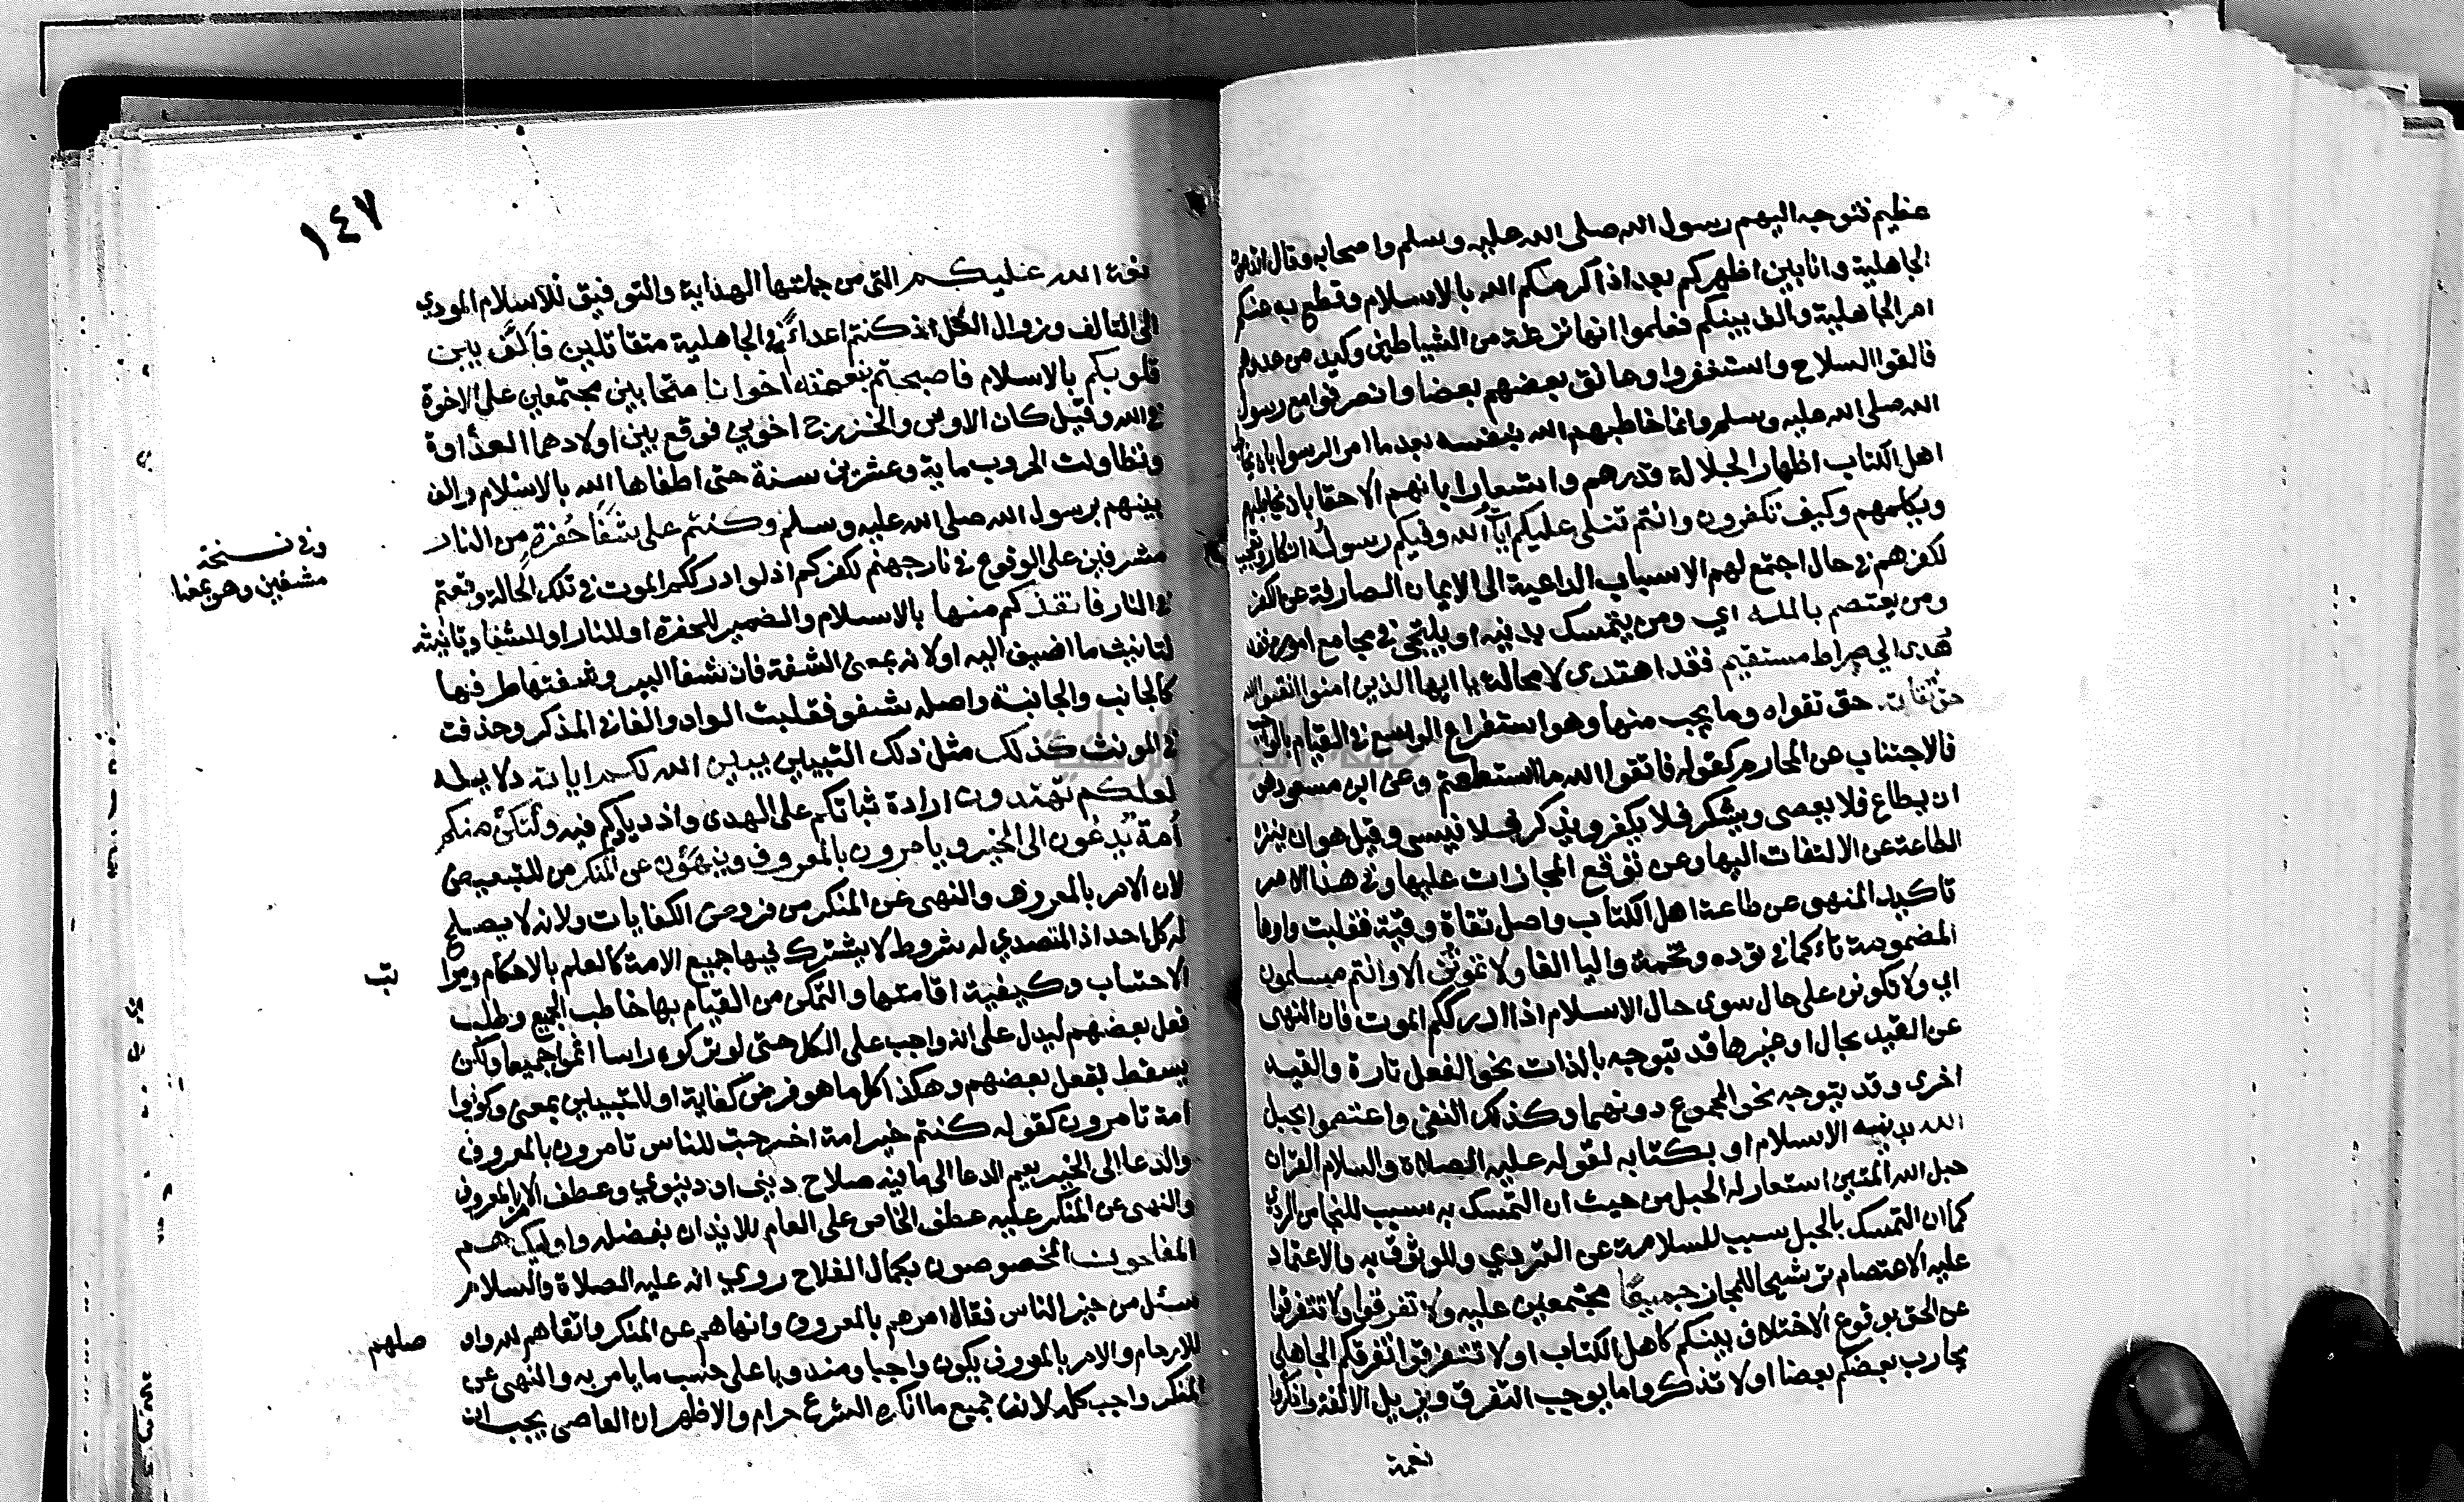 عظيم فتوجه اليهم رسول الله صلى الله عليه وسلم واصحابه وقال اتدعون
الجاهلية وانا بين اظهركم بعد اذ اكرمكم الله بالاسلام وقطع به عنكم
امر الجاهلية والف بينكم فعلموا انها نزغة من الشياطين وكيد من عدوهم
فالقوا السلاح واستغفروا وعانق بعضهم بعضا وانصرفوا مع رسول
الله صلى الله عليه وسلم وانما خاطبهم الله بنفسه بعد ما امر الرسول بان يخاطب
اهل الكتاب اظهارا لجلالة قدرهم واشعارا بانهم الاحقا بان يخاطبهم
ويكلمهم وكيف تكفرون وانتم تتلى عليكم آيات الله وفيكم رسوله انكار وتعجيب
لكفرهم في حال اجتمع لهم الاسباب الداعية الى الايمان الصارفة عن الكفر
ومن يعتصم بالله اي ومن يتمسك بدينه او يلتجي في مجامع اموره فقد
هُدى الى صراط مستقيم فقد اهتدى لا محالة يا ايها الذين امنوا اتقوا الله
حق تقاته حق تقواه وما يجب منها وهو استفراغ الوسع في القيام بالواجب
فالاجتناب عن المحارم كقوله فاتقوا الله ما استطعتم وعن ابن مسعود هو
ان يطاع فلا يعصى ويشكر فلا يكفر ويذكر فلا ينسى وقيل هو ان ينزه
الطاعة عن الالتفات اليها وعن توقع المجازات عليها وفي هذا الامر
تاكيد النهى عن طاعة اهل الكتاب واصل تقاة وقية فقلبت واوها
المضمومة تاء كما في تؤده وتخمة واليا الفا ولا تموتن الا وانتم مسلمون
اي ولا تكونن على حال سوى حال الاسلام اذا ادرككم الموت فان النهى
عن القيد بحال او غيرها قد يتوجه بالذات نحو الفعل تارة والقيد
اخرى وقد يتوجه نحو المجموع دونهما وكذلك النفى واعتصموا بحبل
الله بدينه الاسلام او بكتابه لقوله عليه الصلاة والسلام القران
حبل الله المتين استعار له الحبل من حيث ان التمسك به سبب للنجاه من الردى
كما ان التمسك بالحبل سبب للسلامة عن التردي وللوثوق به والاعتماد
عليه الاعتصام ترشيحا للمجاز جميعًا مجتمعين عليه ولا تفرقوا ولا تتفرقوا
عن الحق بوقوع الاختلاف بينكم كاهل الكتاب او لا تتفرقوا تفرقكم الجاهلي
يحارب بعضكم بعضا او لا تذكروا ما يوجب التفرق ويزيل الالفة واذكروا
نعمة
١٤٧
نعمة الله عليكم التي من جملتها الهداية والتوفيق للاسلام المودي
الى التالف وزوال الغل اذ كنتم اعداءً في الجاهلية متقاتلين فألَّف بين
قلوبكم بالاسلام فاصبحتم بنعمته اخوانا متحابين مجتمعين على الاخوة
في الله وقيل كان الاوس والخزرج اخوين فوقع بين اولادهما العداوة
وتطاولت الحروب ماية وعشرين سنة حتى اطفاها الله بالاسلام والف
بينهم برسول الله صلى الله عليه وسلم وكنتم على شَفَا حُفرةٍ من النار
مشرفين على الوقوع في نار جهنم لكفركم اذ لو ادرككم الموت في تلك الحالة وقعتم
في النار فانقذكم منها بالاسلام والضمير للحفرة او للنار او للشفا وتانيثه
لتانيث ما اضيف اليه او لانه بمعنى الشفة فان شفا البير وشفتها طرفها
كالجانب والجانبة واصله شفو فقلبت الواو الفا في المذكر وحذفت
في المونث كذلك مثل ذلك التبيين يبين الله لكم اياته دلايله
لعلكم تهتدون ارادة ثباتكم على الهدى وازديادكم فيه ولتكن منكم
أُمة يَدعُون الى الخير ويامرون بالمعروف وينهَوْن عن المنكر من للتبعيض
لان الامر بالمعروف والنهى عن المنكر من فروض الكفايات ولانه لا يصلح
له كل احد اذ المتصدي له شروط لا يشترك فيها جميع الامة كالعلم بالاحكام ومرا
تب
الاحتساب وكيفية اقامتها والتمكن من القيام بها خاطب الجميع وطلب
فعل بعضهم ليدل على انه واجب على الكل حتى لو تركوه راسا اثموا جميعا ولكن
يسقط بفعل بعضهم وهكذا كل ما هو فرض كفاية او للتبيين بمعنى وكونوا
امة تامرون كقوله كنتم خير امة اخرجت للناس تامرون بالمعروف
والدعا الى الخير يعم الدعا الى ما فيه صلاح ديني او دنيوي وعطف الامر بالمعروف
والنهى عن المنكر عليه عطف الخاص على العام للايذان بفضله واوليك هم
المفلحون المخصوصون بكمال الفلاح روي انه عليه الصلاة والسلام
سئل من خير الناس فقال امرهم بالمعروف وانهاهم عن المنكر واتقاهم لله واو
صلهم
للارحام والامر بالمعروف يكون واجبا ومندوبا على حسب ما يامر به والنهى عن
المنكر واجب كله لان جميع ما انكره الشرع حرام والاظهر ان العاصى يجب ان
وفي نسخة
مشفين وهو بمعنا
جامعة النجاح الوطنية